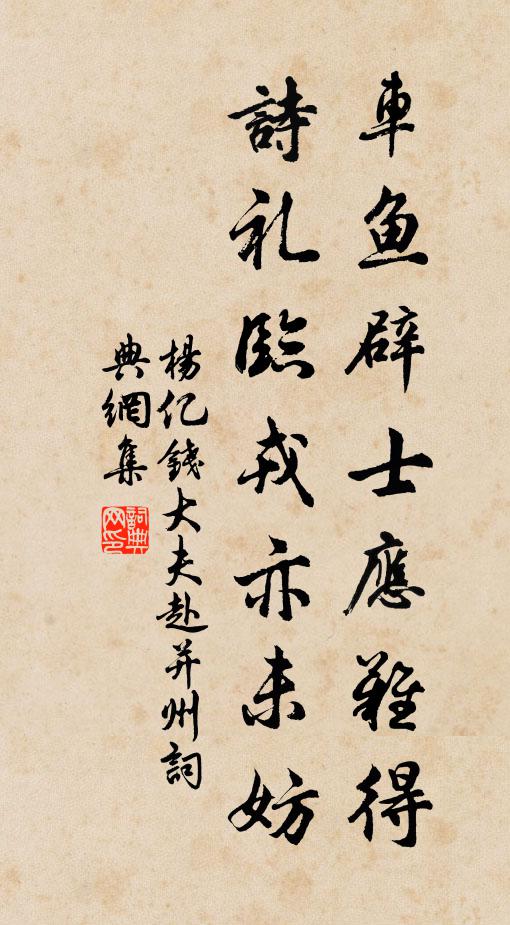 車魚辟士應難得
詩礼臨戎亦未妨
楊亿錢大夫赴并州詞
典網集
詞典網印